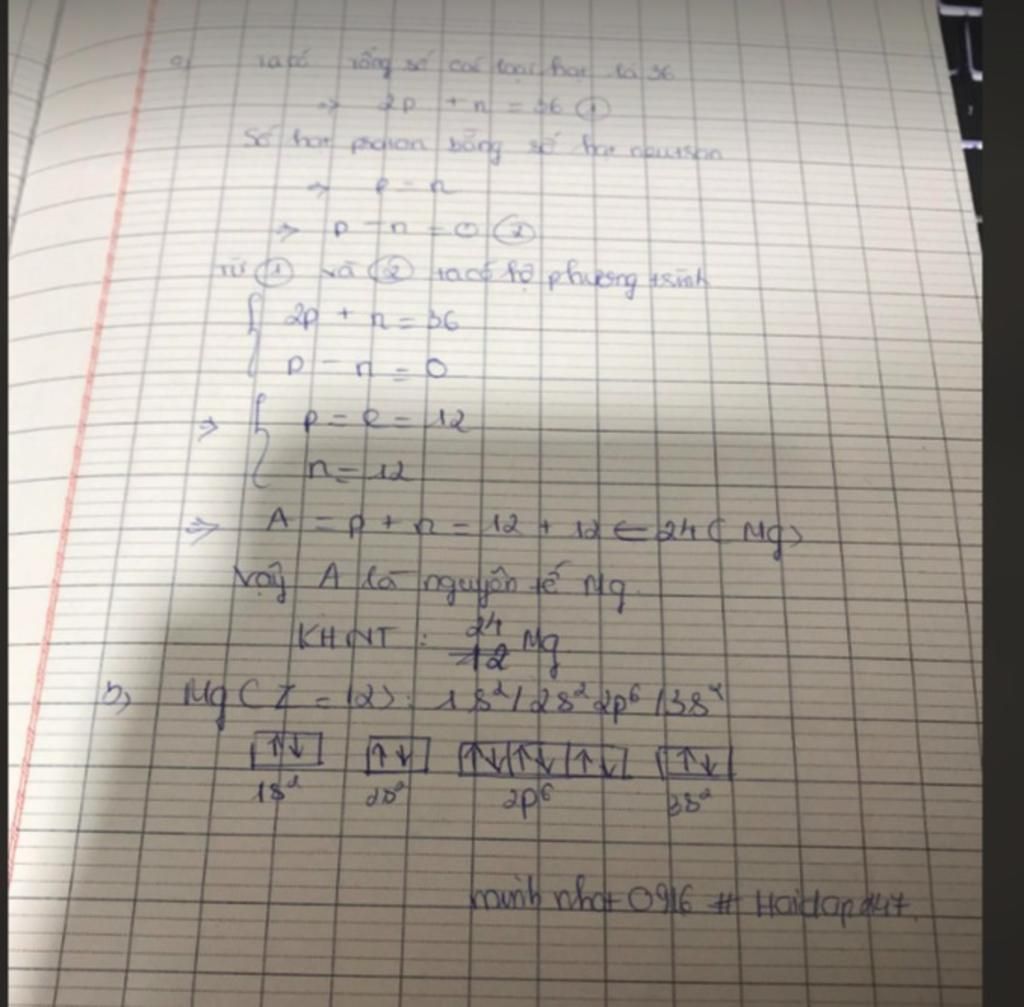 a) ta có tổng số các loại hạt là 36
=> 2p + n = 36 ①
Số hạt proton bằng số hạt neutron
=> p = n
=> p - n = 0 ②
Từ ① và ② ta có hệ phương trình
{ 2p + n = 36
p - n = 0
=> { p = e = 12
n = 12
=> A = p + n = 12 + 12 = 24 ( Mg)
Vậy A là nguyên tố Mg.
KHNT : ²⁴₁₂Mg
b) Mg ( Z = 12) : 1s² / 2s² 2p⁶ / 3s²
↑↓ ↑↓ ↑↓ ↑↓ ↑↓ ↑↓
1s² 2s² 2p⁶ 3s²
minh nhat 0916 # Hoidap247